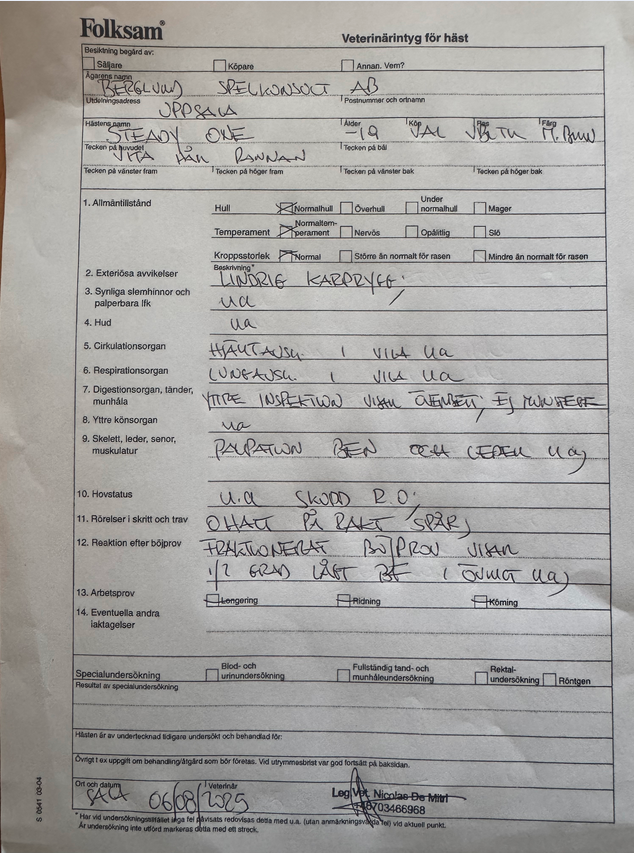 Folksam®
Veterinärintyg för häst
Besiktning begärd av:
Säljare Köpare Annan. Vem?
Ägarens namn
BERGLUND SPELKONSULT AB
Utdelningsadress Postnummer och ortnamn
UPPSALA
Hästens namn Ålder Kön Ras Färg
STEADY ONE -19 VAL
Tecken på huvudet Tecken på bål
VITA HÅR PANNAN
Tecken på vänster fram Tecken på höger fram Tecken på vänster bak Tecken på höger bak
1. Allmäntillstånd
Hull Normalhull Överhull Under normalhull Mager
Temperament Normaltemperament Nervös Opålitlig Slö
Kroppsstorlek Normal Större än normalt för rasen Mindre än normalt för rasen
2. Exteriösa avvikelser Beskrivning*
LINDRIG KARPRYGG.
3. Synliga slemhinnor och palperbara lfk
ua
4. Hud ua
5. Cirkulationsorgan HJÄRTAUSK. I VILA ua
6. Respirationsorgan LUNGAUSK. I VILA ua
7. Digestionsorgan, tänder, munhåla
YTTRE INSPEKTION VISAR EJ
8. Yttre könsorgan ua
9. Skelett, leder, senor, muskulatur
PALPATION BEN OCH LEDER ua
10. Hovstatus u.a SKODD R.O.
11. Rörelser i skritt och trav OHALT PÅ RAKT SPÅR
12. Reaktion efter böjprov FRAKTIONERAT BÖJPROV VISAR
1/2 GRAD I ÖVRIGT ua
13. Arbetsprov Longering Ridning Körning
14. Eventuella andra iakttagelser
Specialundersökning Blod- och urinundersökning Fullständig tand- och munhåleundersökning Rektalundersökning Röntgen
Resultat av specialundersökning
Hästen är av undertecknad tidigare undersökt och behandlad för:
Övrigt t ex uppgift om behandling/åtgärd som bör företas. Vid utrymmesbrist var god fortsätt på baksidan.
Ort och datum Veterinär
SALA 06/08/2025
Leg.Vet. Nicolas De Mitri
703466968
* Har vid undersökningstillfället inga fel påvisats redovisas detta med u.a. (utan anmärkningsvärda fel) vid aktuell punkt.
Är undersökning inte utförd markeras detta med ett streck.
S 0541 03-04